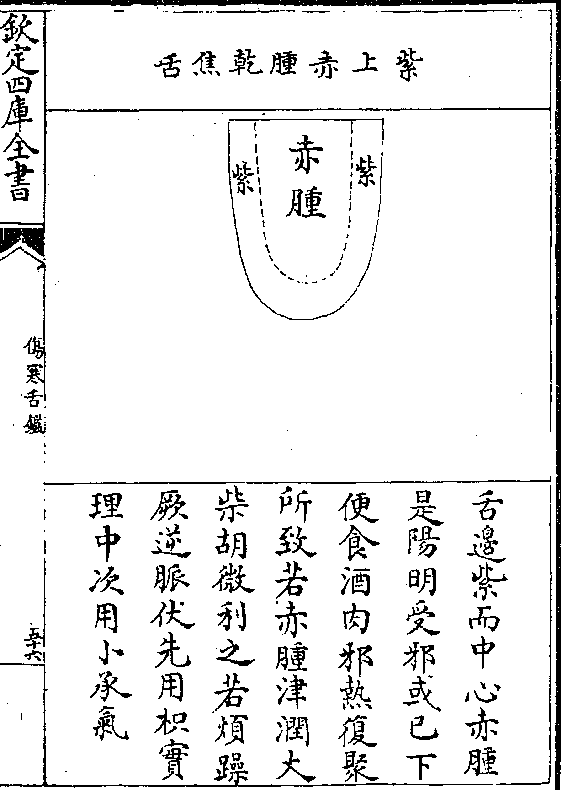 紫上赤腫乾焦舌
紫
赤腫
紫
舌邊紫而中心赤腫
是陽明受邪或已下
便食酒肉邪熱復聚
所致若赤腫津潤大
柴胡微利之若煩躁
厥逆脈伏先用枳實
理中次用小承氣
欽定四庫全書
傷寒舌鑑
五十六